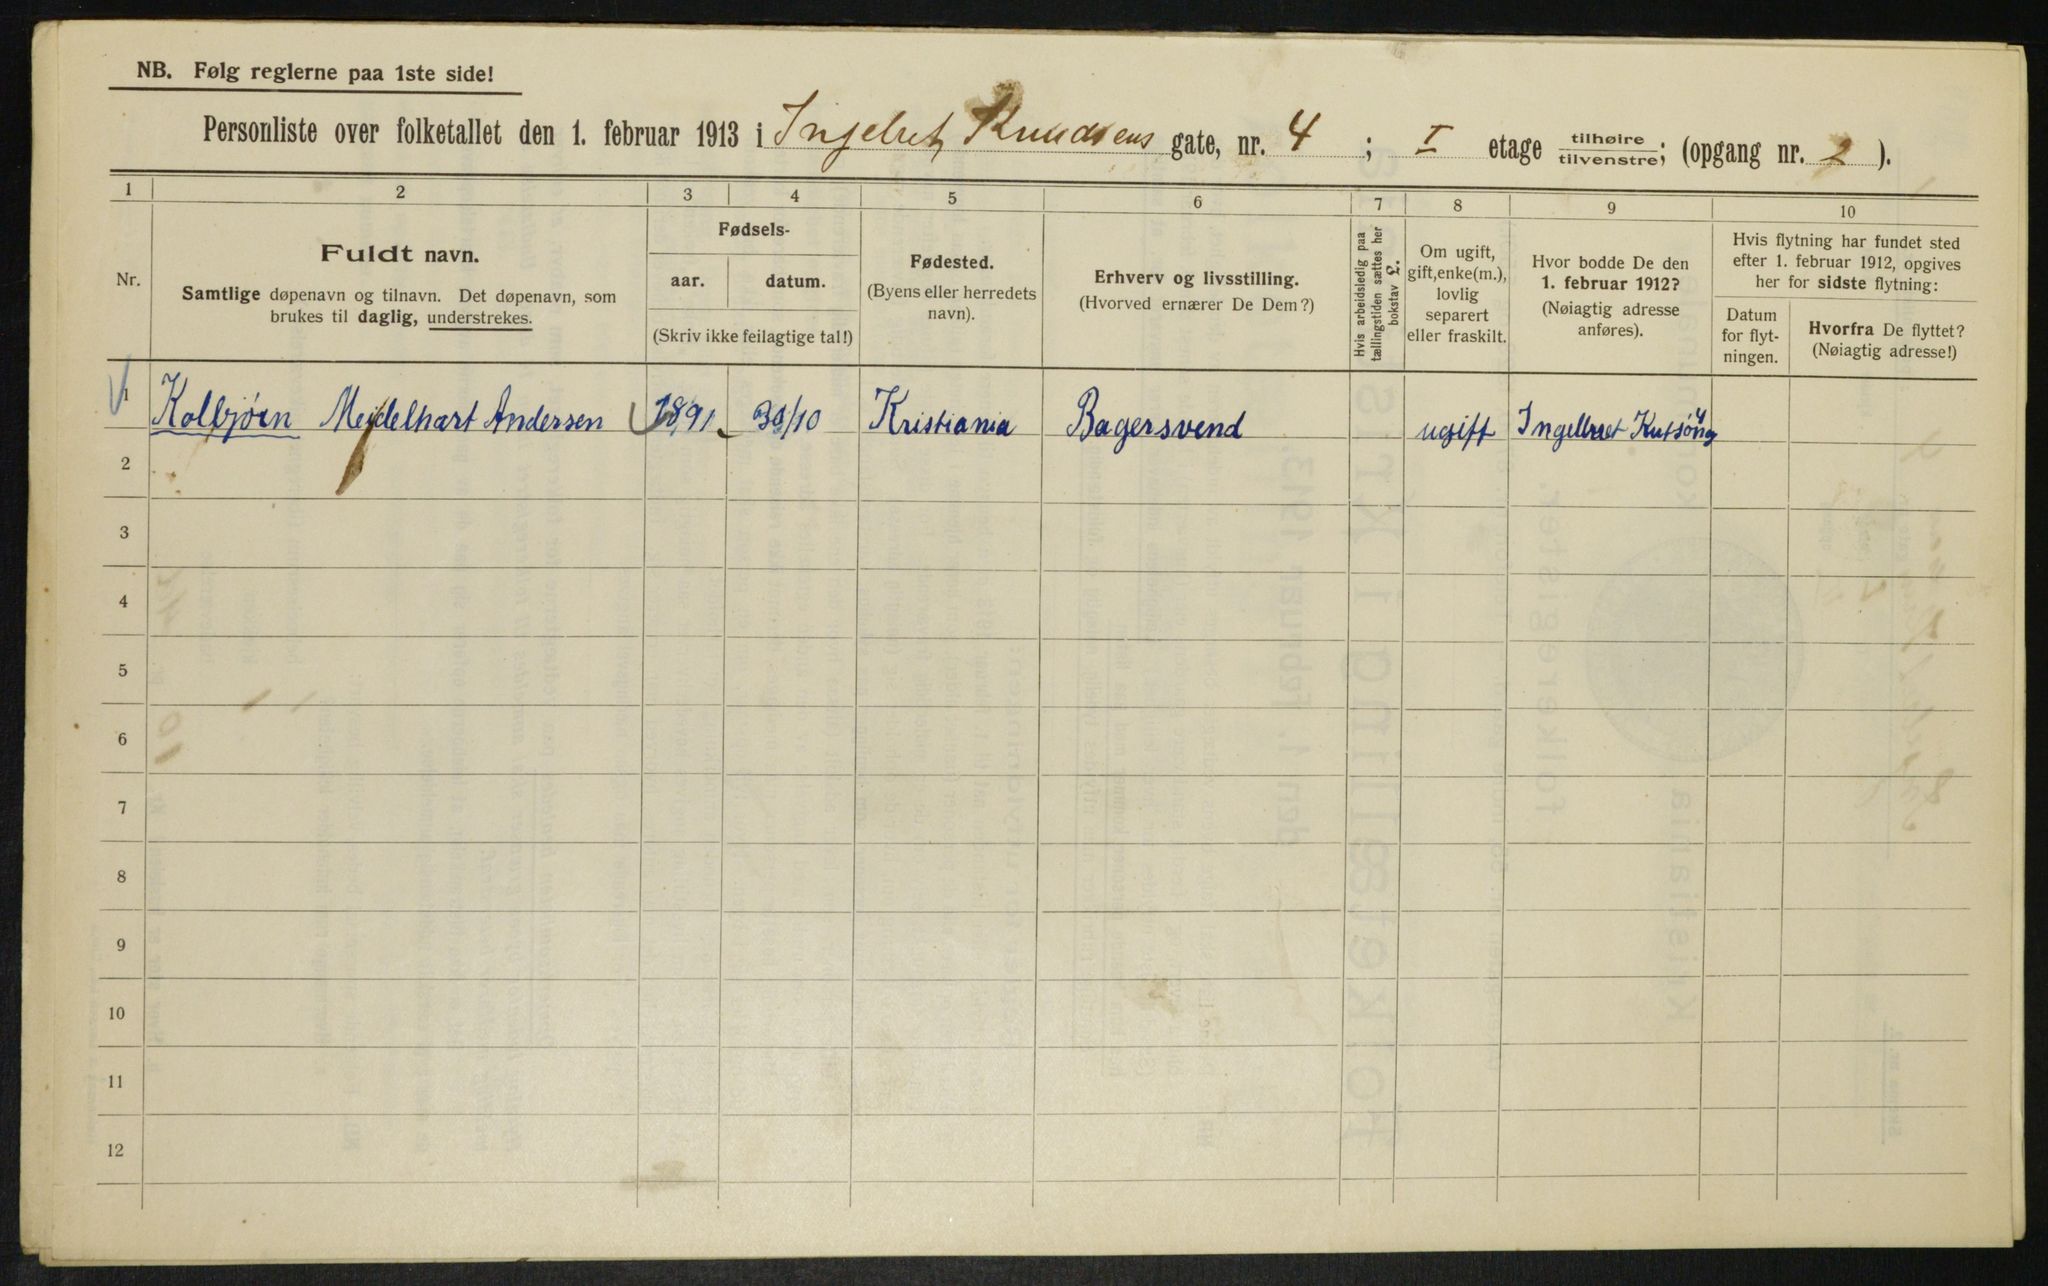 NB. Følg reglerne paa 1ste side!
Personliste over folketallet den 1. februar 1913 i Ingebret Knudsens gate, nr. 4 ; I etage tilhøire tilvenstre; (opgang nr. 2 ).
1 2 3 4 5 6 7 8 9 10
Nr.
Fuldt navn.
Samtlige døpenavn og tilnavn. Det døpenavn, som
brukes til daglig, understrekes.
Fødsels-
aar. datum.
(Skriv ikke feilagtige tal!)
Fødested.
(Byens eller herredets
navn).
Erhverv og livsstilling.
(Hvorved ernærer De Dem?)
Hvis arbeidsledig paa
tællingstiden sættes her
bokstav L.
Om ugift,
gift, enke(m.),
lovlig
separert
eller fraskilt.
Hvor bodde De den
1. februar 1912?
(Nøiagtig adresse
anføres).
Hvis flytning har fundet sted
efter 1. februar 1912, opgives
her for sidste flytning:
Datum
for flyt-
ningen.
Hvorfra De flyttet?
(Nøiagtig adresse!)
1 Kolbjørn Meidelhart Andersen 1891 30/10 Kristiania Bagersvend ugift Ingelbret
2
3
4
5
6
7
8
9
10
11
12